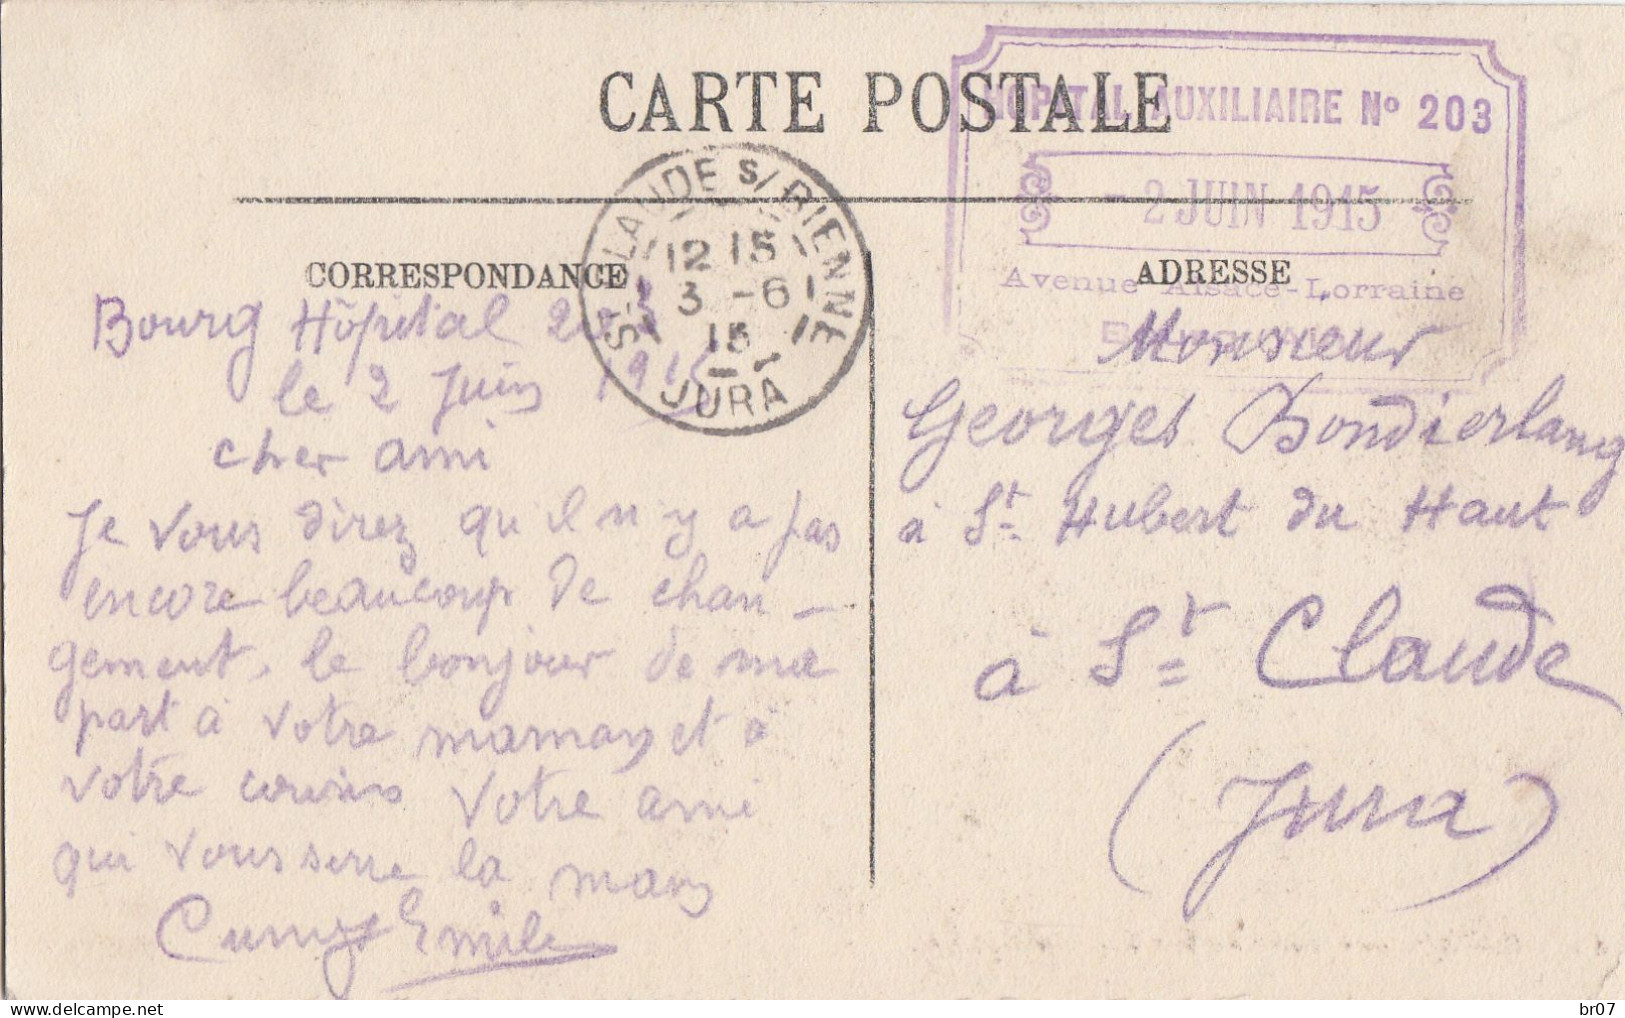 CARTE POSTALE
HOPITAL AUXILIAIRE No 203
- 2 JUIN 1915
Avenue Alsace-Lorraine
ST CLAUDE S/ BIENNE
12 15
3 -6
15
JURA
CORRESPONDANCE
ADRESSE
Bourg Hôpital 203
le 2 Juin 1915
cher ami
Je vous direz qu il n y a pas
encore beaucoup de chan-
gement, le bonjour de ma
part à votre maman et à
votre cousins Votre ami
qui vous serre la main
Emile
Monsieur
Georges
à St Hubert du Haut
à St Claude
(Jura)
br07